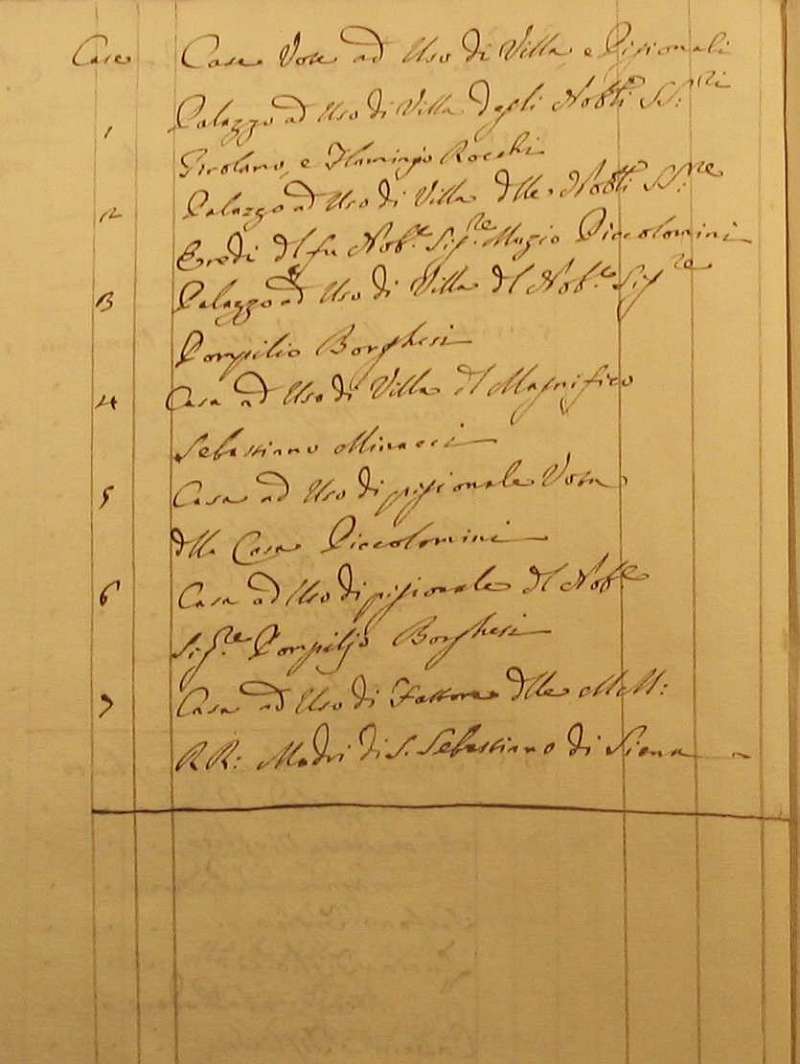 Case Case Vote ad Uso di Villa, e Pigionali
1 Palazzo ad Uso di Villa degli Nobli SS:ri
Girolamo, e Flaminio Rocchi
2 Palazzo ad Uso di Villa dlle Nobli SS:re
Eredi dl fu Nob:e Sig:re Muzio Piccolomini
3 Palazzo ad Uso di Villa dl Nob:le Sigre
Pompilio Borghesi
4 Casa ad Uso di Villa dl Magnifico
Sebastiano Minacci
5 Casa ad Uso di pigionale Vota
dlla Casa Piccolomini
6 Casa ad Uso di pigionale dl Nob:e
Sig:re Pompilio Borghesi
7 Casa ad Uso di Fattore dlle MM:
RR: Madri di S. Sebastiano di Siena